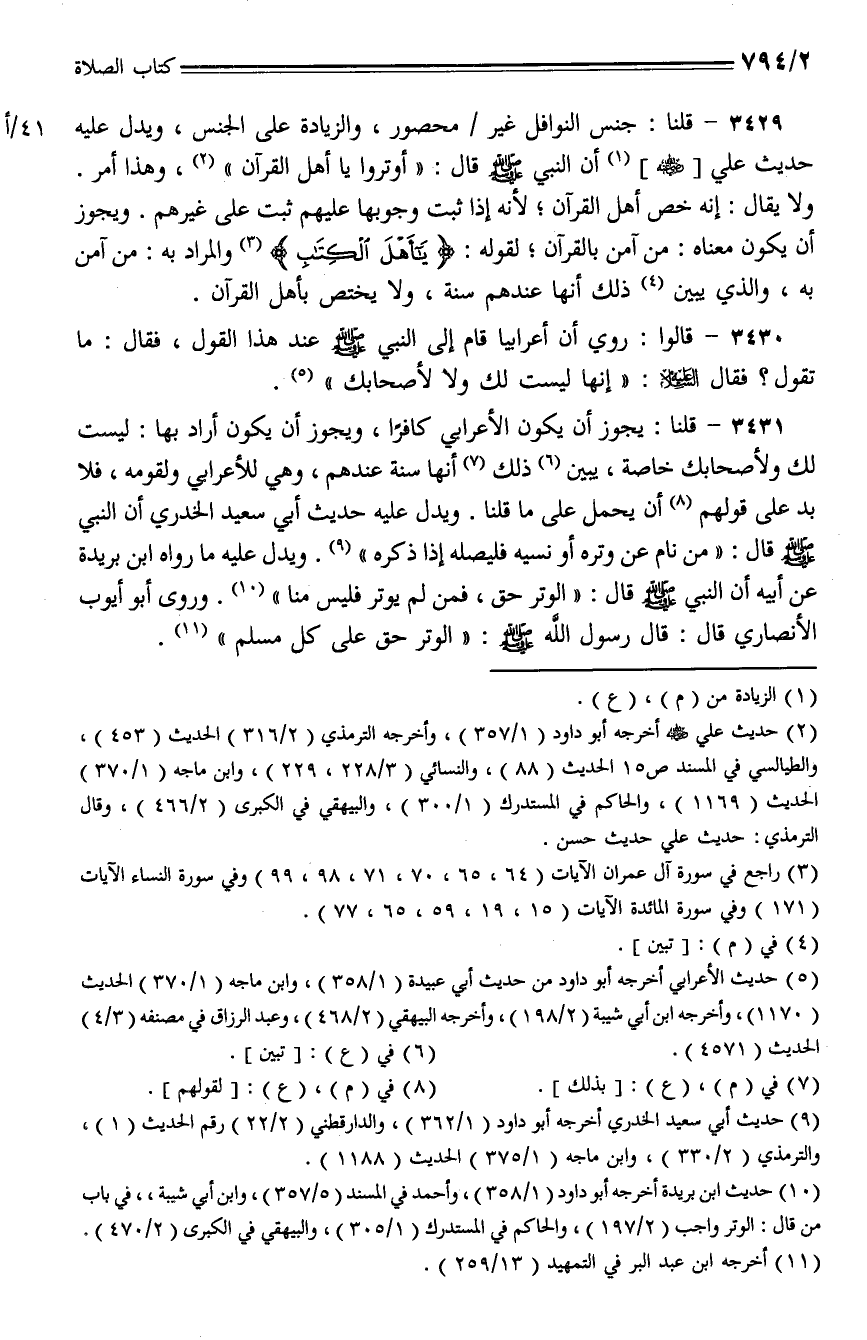 ٧٩٤/٢ كتاب الصلاة
٣٤٢٩ - قلنا : جنس النوافل غير / محصور ، والزيادة على الجنس ، ويدل عليه ٤١/أ
حديث علي [ ﵁ ] (١) أن النبي ﷺ قال : « أوتروا يا أهل القرآن » (٢) ، وهذا أمر .
ولا يقال : إنه خص أهل القرآن ؛ لأنه إذا ثبت وجوبها عليهم ثبت على غيرهم . ويجوز
أن يكون معناه : من آمن بالقرآن ؛ لقوله : ﴿ يَٰٓأَهْلَ ٱلْكِتَٰبِ ﴾ (٣) والمراد به : من آمن
به ، والذي يبين (٤) ذلك أنها عندهم سنة ، ولا يختص بأهل القرآن .
٣٤٣٠ - قالوا : روي أن أعرابيا قام إلى النبي ﷺ عند هذا القول ، فقال : ما
تقول ؟ فقال ﵇ : « إنها ليست لك ولا لأصحابك » (٥) .
٣٤٣١ - قلنا : يجوز أن يكون الأعرابي كافرًا ، ويجوز أن يكون أراد بها : ليست
لك ولأصحابك خاصة ، يبين (٦) ذلك (٧) أنها سنة عندهم ، وهي للأعرابي ولقومه ، فلا
بد على قولهم (٨) أن يحمل على ما قلنا . ويدل عليه حديث أبي سعيد الخدري أن النبي
ﷺ قال : « من نام عن وتره أو نسيه فليصله إذا ذكره » (٩) . ويدل عليه ما رواه ابن بريدة
عن أبيه أن النبي ﷺ قال : « الوتر حق ، فمن لم يوتر فليس منا » (١٠) . وروى أبو أيوب
الأنصاري قال : قال رسول اللَّه ﷺ : « الوتر حق على كل مسلم » (١١) .
(١) الزيادة من ( م ) ، ( ع ) .
(٢) حديث علي ﵁ أخرجه أبو داود ( ٣٥٧/١ ) ، وأخرجه الترمذي ( ٣١٦/٢ ) الحديث ( ٤٥٣ ) ،
والطيالسي في المسند ص١٥ الحديث ( ٨٨ ) ، والنسائي ( ٢٢٨/٣ ، ٢٢٩ ) ، وابن ماجه ( ٣٧٠/١ )
الحديث ( ١١٦٩ ) ، والحاكم في المستدرك ( ٣٠٠/١ ) ، والبيهقي في الكبرى ( ٤٦٦/٢ ) ، وقال
الترمذي : حديث علي حديث حسن .
(٣) راجع في سورة آل عمران الآيات ( ٦٤ ، ٦٥ ، ٧٠ ، ٧١ ، ٩٨ ، ٩٩ ) وفي سورة النساء الآيات
( ١٧١ ) وفي سورة المائدة الآيات ( ١٥ ، ١٩ ، ٥٩ ، ٦٥ ، ٧٧ ) .
(٤) في ( م ) : [ تبين ] .
(٥) حديث الأعرابي أخرجه أبو داود من حديث أبي عبيدة ( ٣٥٨/١ ) ، وابن ماجه ( ٣٧٠/١ ) الحديث
( ١١٧٠ ) ، وأخرجه ابن أبي شيبة ( ١٩٨/٢ ) ، وأخرجه البيهقي ( ٤٦٨/٢ ) ، وعبد الرزاق في مصنفه ( ٤/٣ )
الحديث ( ٤٥٧١ ) . (٦) في ( ع ) : [ تبين ] .
(٧) في ( م ) ، ( ع ) : [ بذلك ] . (٨) في ( م ) ، ( ع ) : [ لقولهم ] .
(٩) حديث أبي سعيد الخدري أخرجه أبو داود ( ٣٦٢/١ ) ، والدارقطني ( ٢٢/٢ ) رقم الحديث ( ١ ) ،
والترمذي ( ٣٣٠/٢ ) ، وابن ماجه ( ٣٧٥/١ ) الحديث ( ١١٨٨ ) .
(١٠) حديث ابن بريدة أخرجه أبو داود ( ٣٥٨/١ ) ، وأحمد في المسند ( ٣٥٧/٥ ) ، وابن أبي شيبة ، ، في باب
من قال : الوتر واجب ( ١٩٧/٢ ) ، والحاكم في المستدرك ( ٣٠٥/١ ) ، والبيهقي في الكبرى ( ٤٧٠/٢ ) .
(١١) أخرجه ابن عبد البر في التمهيد ( ٢٥٩/١٣ ) .